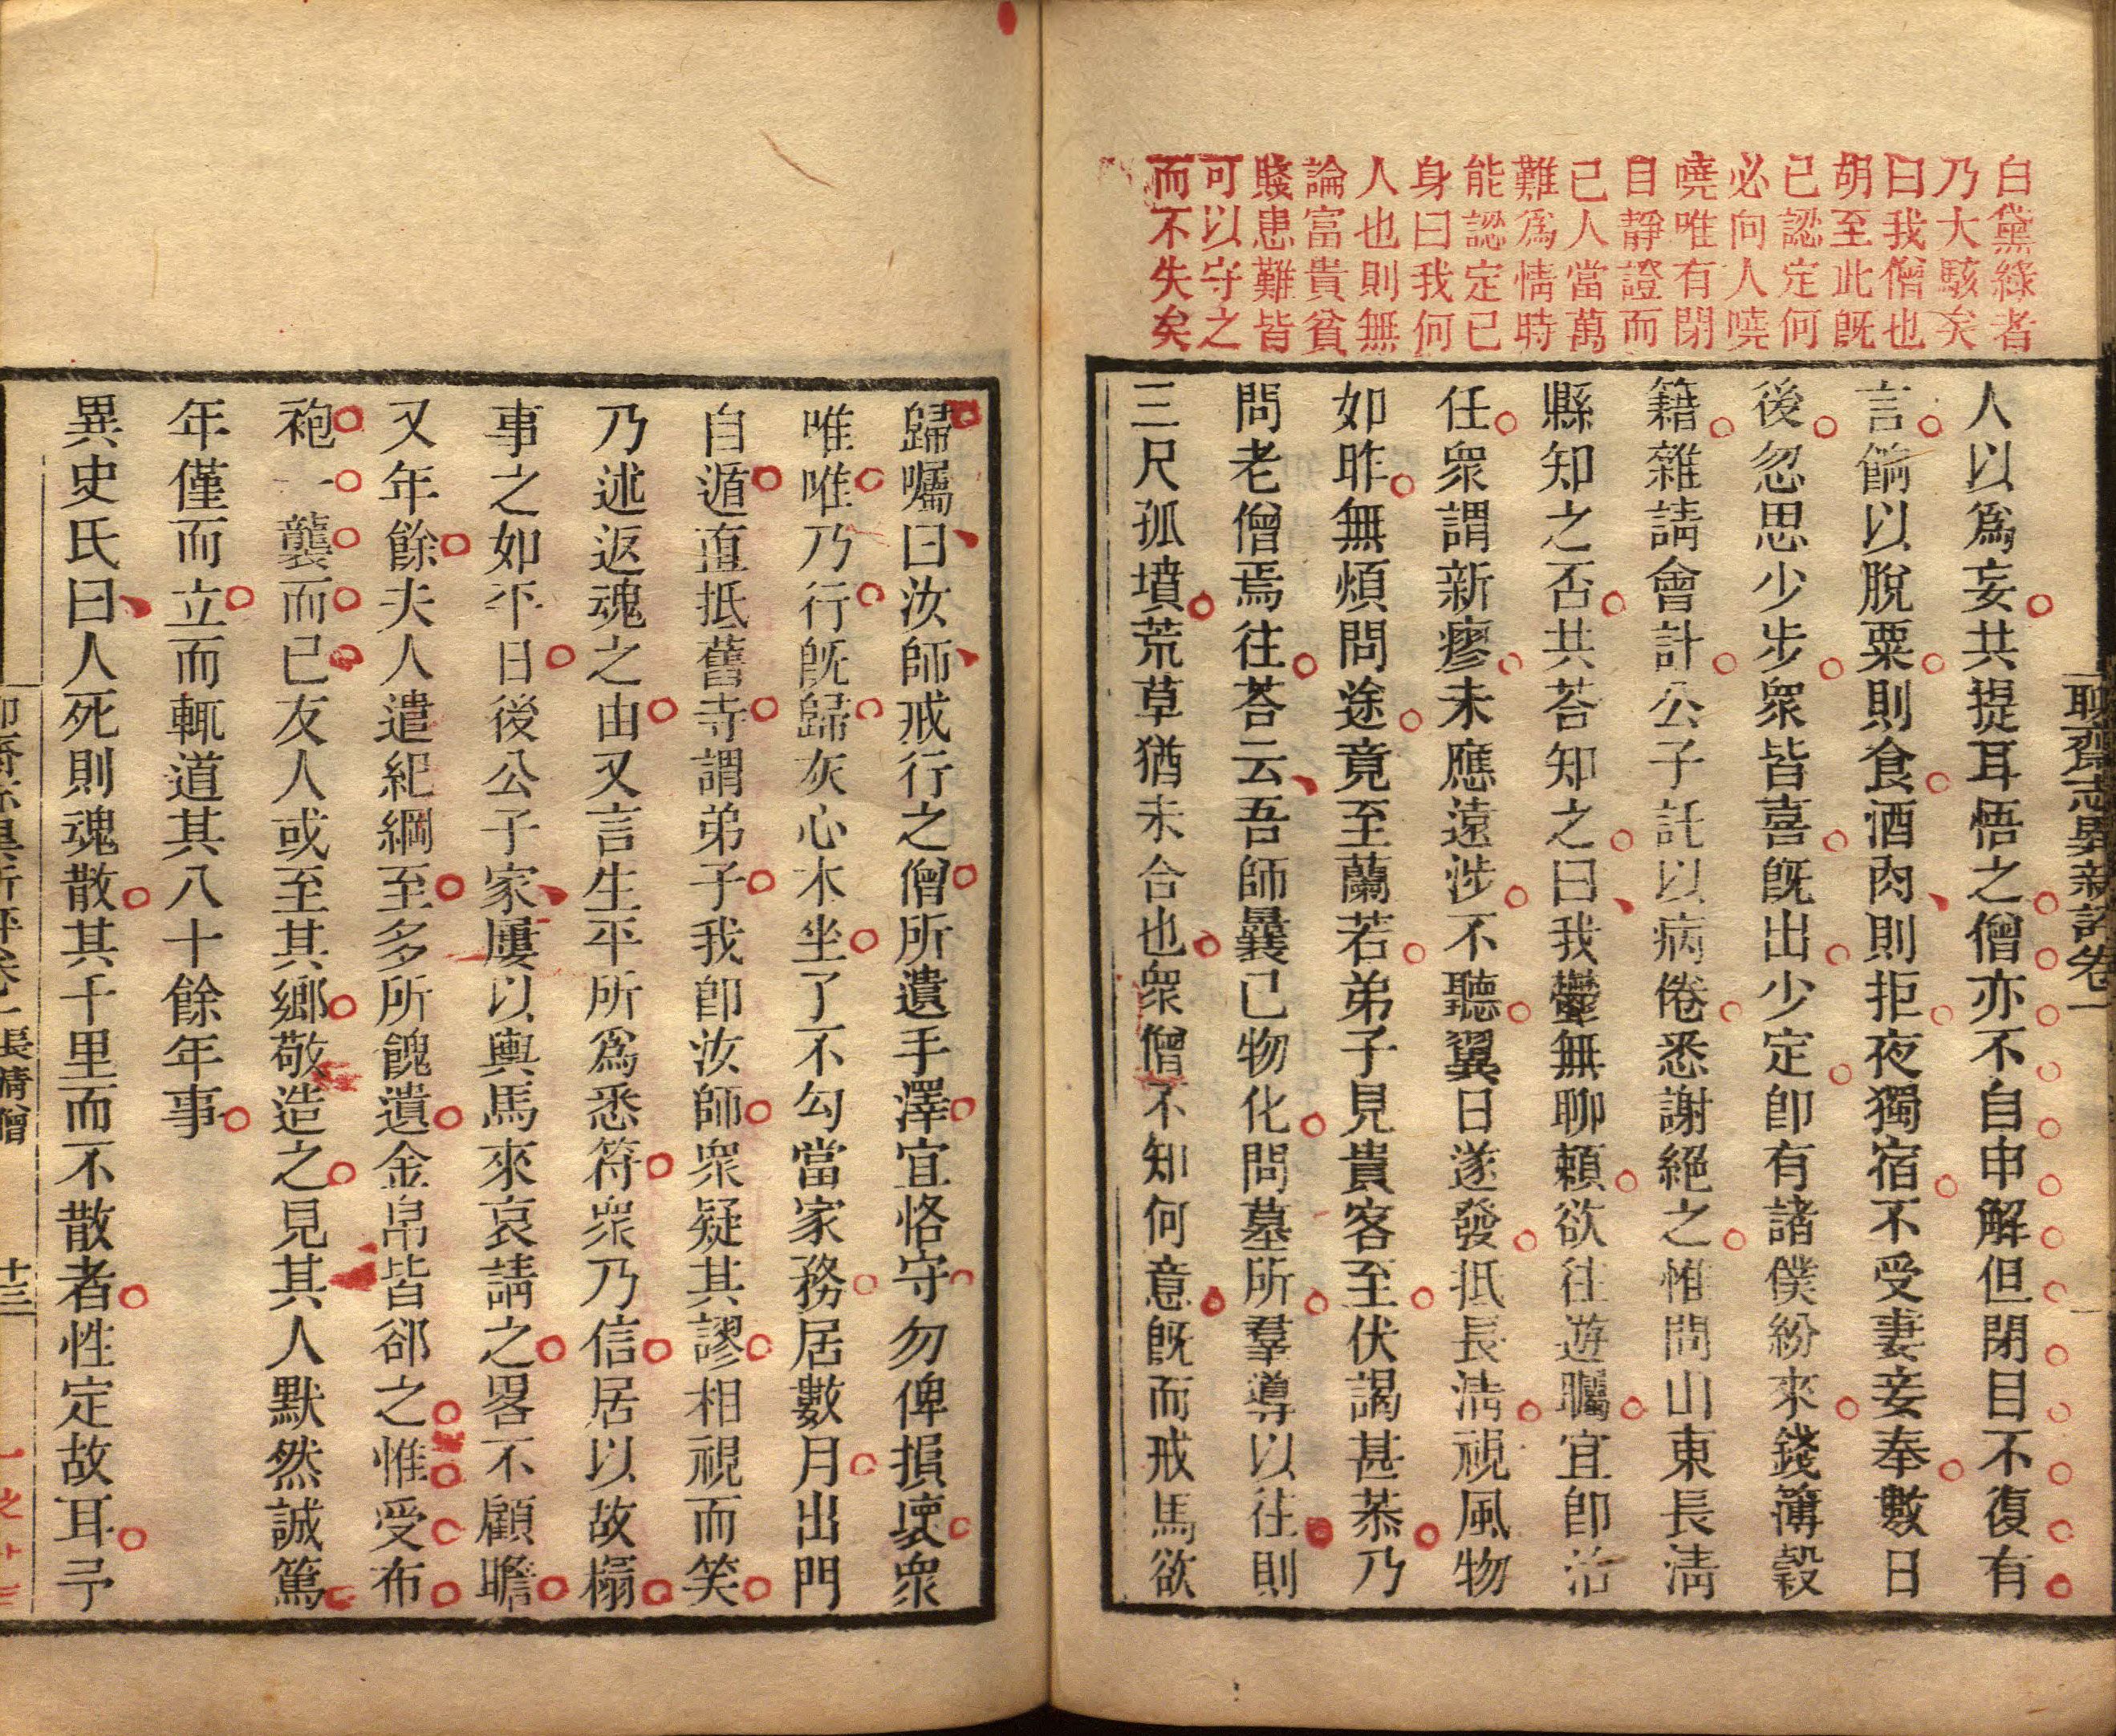 白黛綠者
乃大駭矣
曰我僧也
胡至此既
已認定何
必向人嘵
嘵唯有閉
目靜證而
已人當萬
難爲情時
能認定已
身曰我何
人也則無
論富貴貧
賤患難皆
可以守之
而不失矣
聊齋志異新評卷一
人以爲妄共提耳悟之僧亦不自申解但閉目不復有
言餉以脫粟則食酒肉則拒夜獨宿不受妻妾奉數日
後忽思少步衆皆喜旣出少定卽有諸僕紛來錢簿穀
籍雜請會計公子託以病倦悉謝絕之惟問山東長淸
縣知之否共荅知之曰我鬱無聊賴欲往遊矚宜卽治
任衆謂新瘳未應遠涉不聽翼日遂發抵長淸視風物
如昨無煩問途竟至蘭若弟子見貴客至伏謁甚恭乃
問老僧焉往荅云吾師曩已物化問墓所羣導以往則
三尺孤墳荒草猶未合也衆僧不知何意旣而戒馬欲
歸囑曰汝師戒行之僧所遺手澤宜恪守勿俾損壞衆
唯唯乃行旣歸灰心木坐了不勾當家務居數月出門
自遁直抵舊寺謂弟子我卽汝師衆疑其謬相視而笑
乃述返魂之由又言生平所爲悉符衆乃信居以故榻
事之如平日後公子家屢以輿馬來哀請之畧不顧瞻
又年餘夫人遣紀綱至多所餽遺金帛皆郤之惟受布
袍一襲而已友人或至其鄉敬造之見其人默然誠篤
年僅而立而輒道其八十餘年事
異史氏曰人死則魂散其千里而不散者性定故耳予
長淸僧
十三